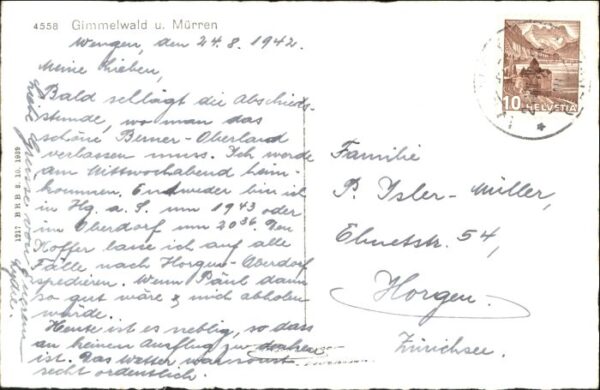 4558 Gimmelwald u. Mürren
Wengen, den 24.8.1942.
Meine Lieben,
Bald schlägt die Abschieds-
stunde, wo man das
schöne Berner-Oberland
verlassen muss. Ich werde
am Mittwochabend heim-
kommen. Endweder bin ich
in Hg. a. S. um 19⁴³ oder
im Oberdorf um 20³⁶. Den
Koffer lasse ich auf alle
Fälle nach Horgen-Oberdorf
spedieren. Wenn Päul dann
so gut wäre & mich abholen
würde.
Heute ist es neblig, so dass
an keinen Ausflug zu denken
ist. Das Wetter war sonst
recht ordentlich.
Liebe Grüsse von Eurem
1217 B R B 3. 10. 1939
10 HELVETIA
Familie
P. Isler-Müller,
Ebnetstr. 54,
Horgen.
Zürichsee.